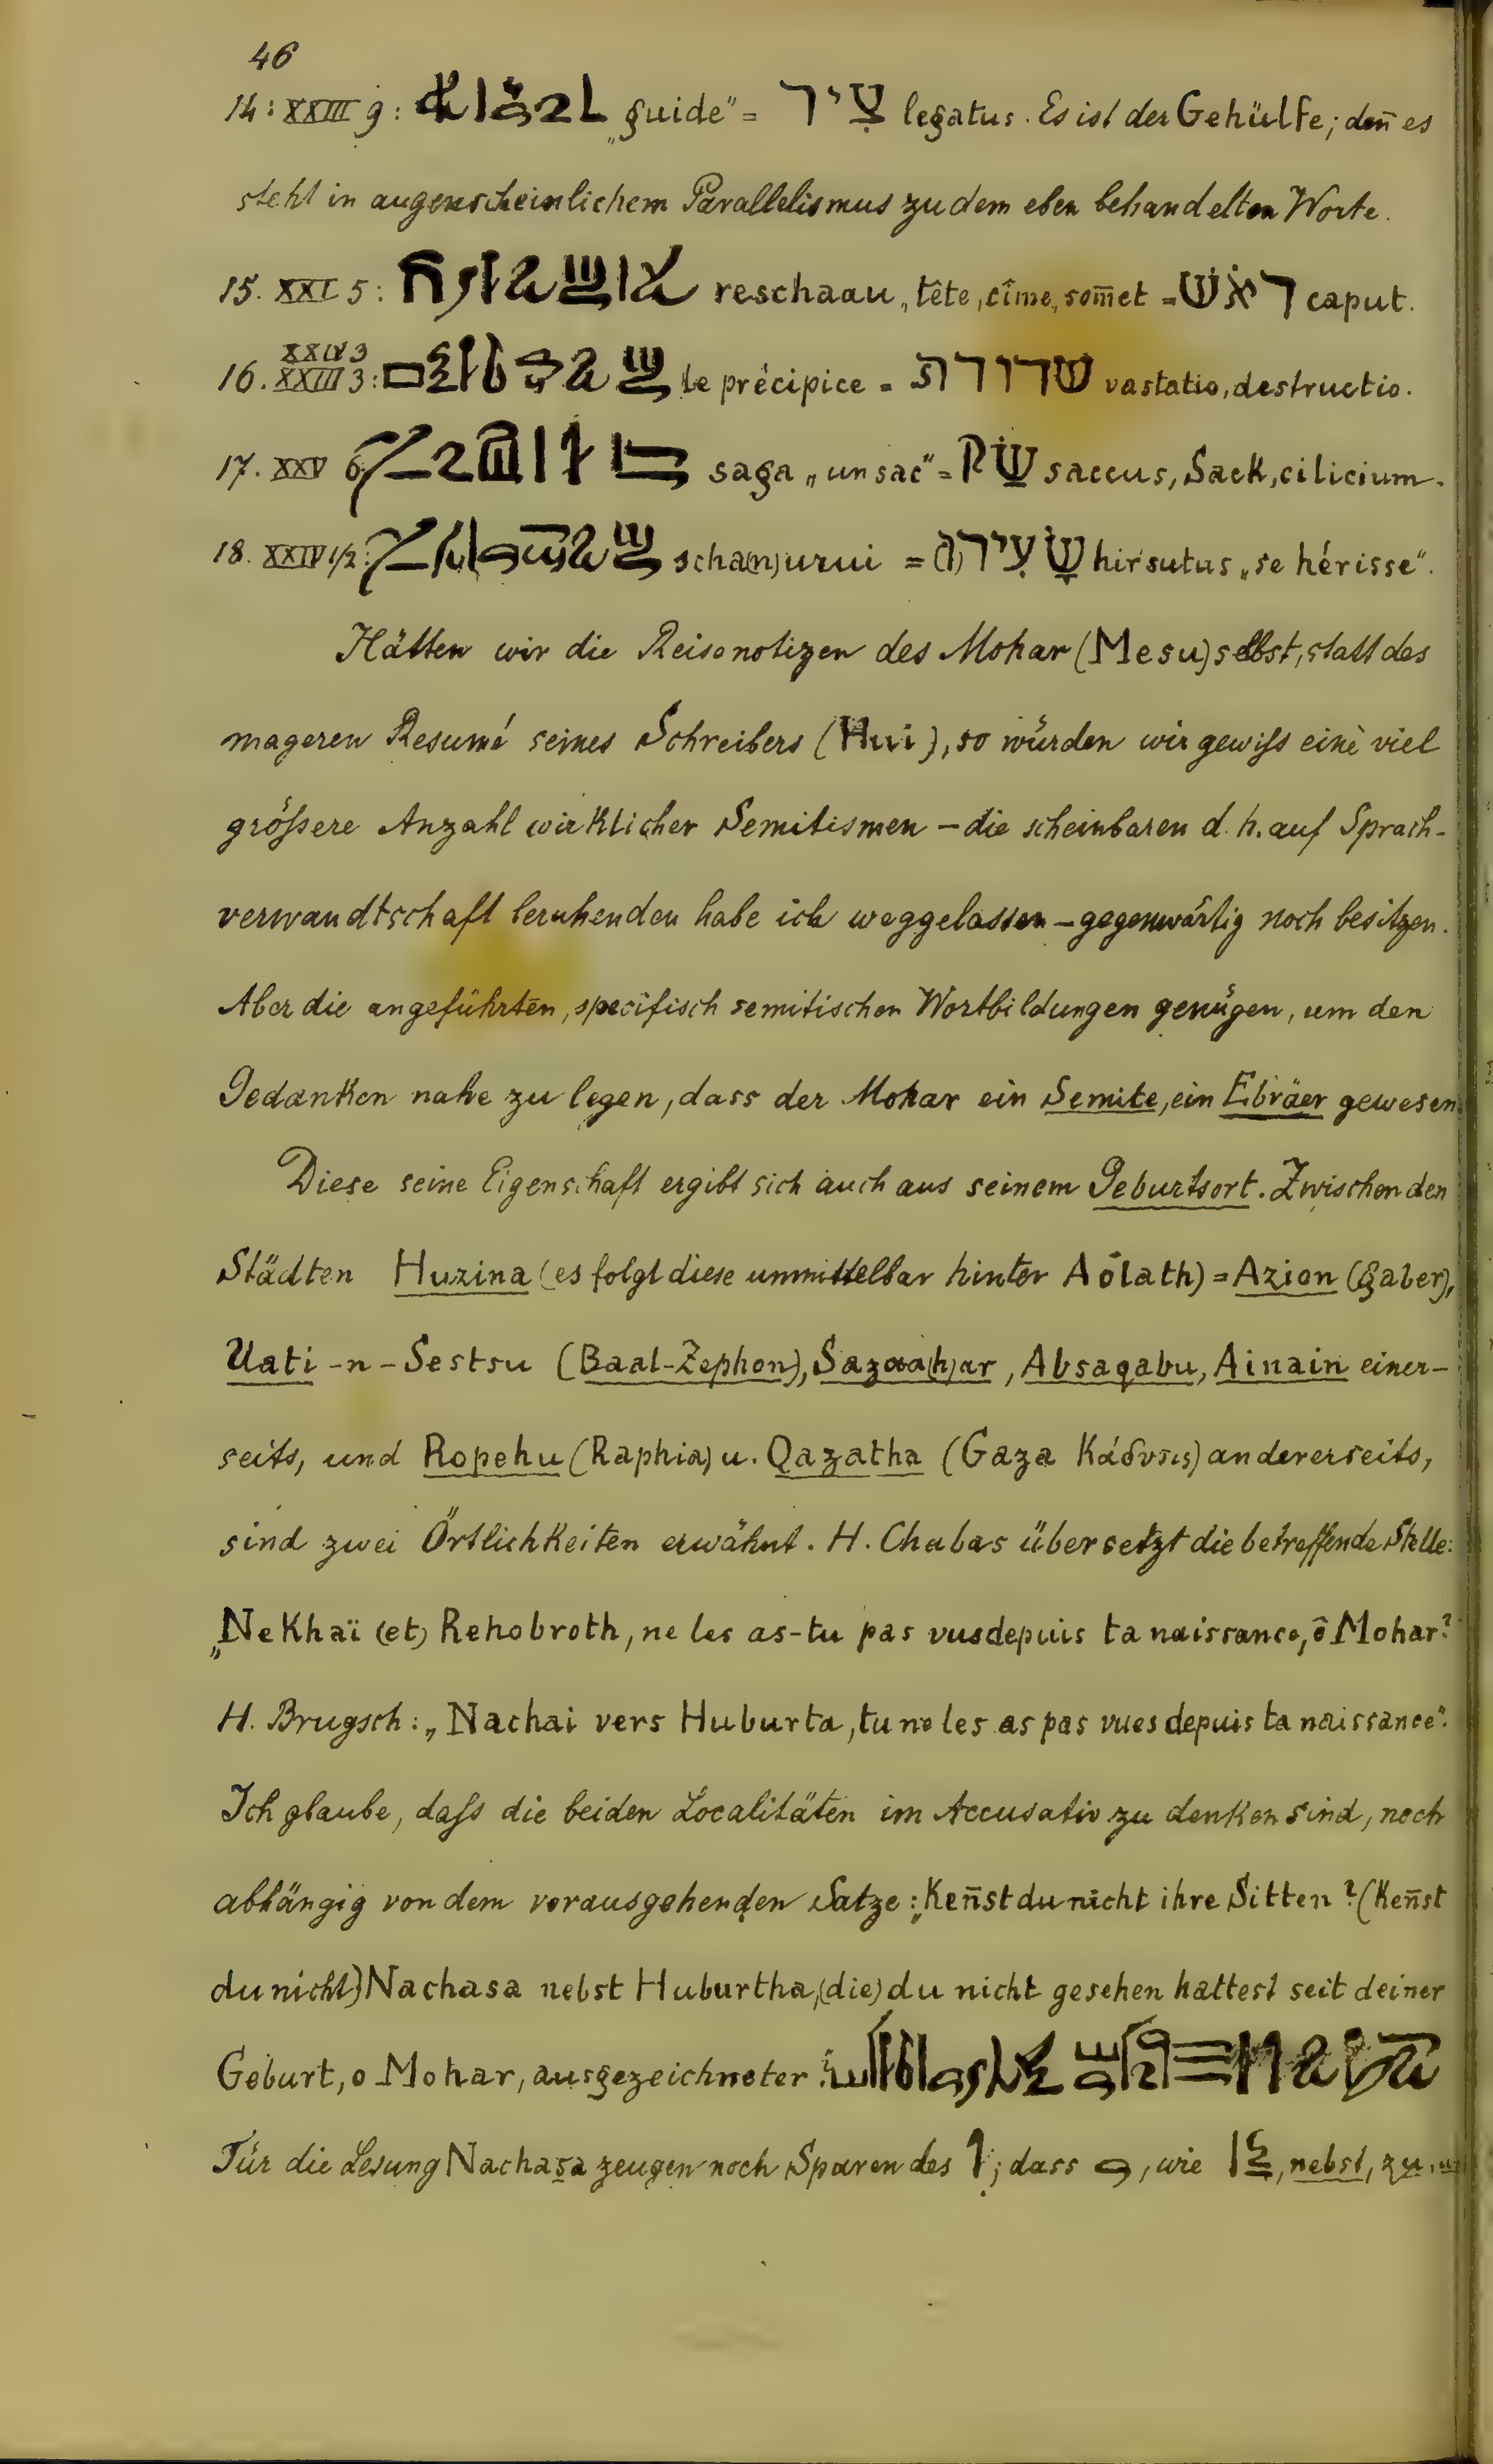 46
14: XXIII 9: „guide" = צִיר legatus. Es ist der Gehülfe; den̄ es
steht in augenscheinlichem Parallelismus zu dem eben behandelten Worte.
15. XXI 5: reschaau „tête, cîme, som̄et = רֹאשׁ caput.
XXIV 3
16. XXIII 3: le précipice = שדודת vastatio, destructio.
17. XXV 6: saga „un sac" = שׂק saccus, Sack, cilicium.
18. XXIV 1/2: scha(n)urui = שָׂעִיר(ה) hirsutus „se hérisse".
Hätten wir die Reisenotizen des Mohar (Mesu) selbst, statt des
mageren Resumé seines Schreibers (Hui), so würden wir gewiſs eine viel
gröſsere Anzahl wirklicher Semitismen – die scheinbaren d. h. auf Sprach-
verwandtschaft beruhenden habe ich weggelassen – gegenwärtig noch besitzen.
Aber die angeführten, specifisch semitischen Wortbildungen genügen, um den
Gedanken nahe zu legen, dass der Mohar ein Semite, ein Ebräer gewesen.
Diese seine Eigenschaft ergibt sich auch aus seinem Geburtsort. Zwischen den
Städten Huzina (es folgt diese unmittelbar hinter Aölath) = Azion (gaber),
Uati-n-Sestsu (Baal-Zephon), Sazaa(h)ar, Absaqabu, Ainain einer-
seits, und Ropehu (Raphia) u. Qazatha (Gaza Κάδυτις) andererseits,
sind zwei Örtlichkeiten erwähnt. H. Chabas übersetzt die betreffende Stelle:
„Nekhaï (et) Rehobroth, ne les as-tu pas vus depuis ta naissance, ô Mohar?
H. Brugsch: „Nachai vers Huburta, tu ne les as pas vues depuis ta naissance".
Ich glaube, daſs die beiden Localitäten im Accusativ zu denken sind, noch
abhängig von dem vorausgehenden Satze: „Ken̄st du nicht ihre Sitten? (Ken̄st
du nicht) Nachasa nebst Huburtha, (die) du nicht gesehen hattest seit deiner
Geburt, o Mohar, ausgezeichneter:
Für die Lesung Nachasa zeugen noch Spuren des ; dass , wie , nebst, zu